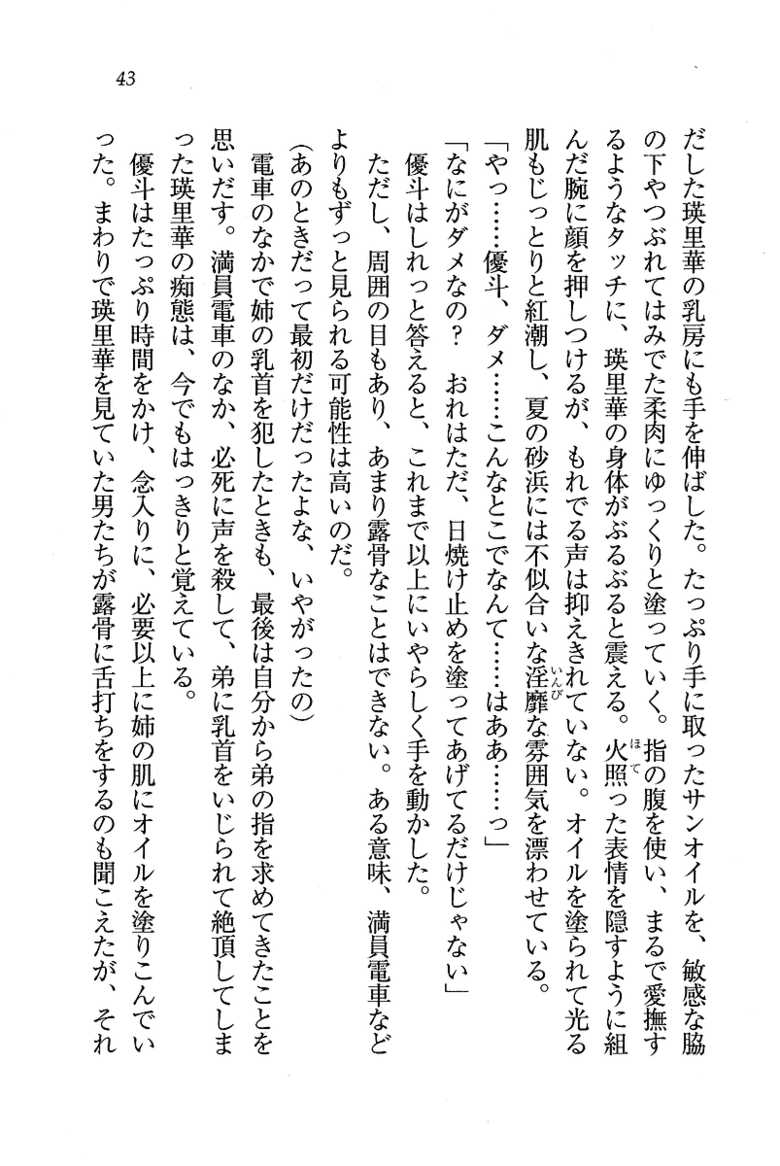 43
だした瑛里華の乳房にも手を伸ばした。たっぷり手に取ったサンオイルを、敏感な脇
の下やつぶれてはみでた柔肉にゆっくりと塗っていく。指の腹を使い、まるで愛撫す
るようなタッチに、瑛里華の身体がぶるぶると震える。火照った表情を隠すように組
んだ腕に顔を押しつけるが、もれでる声は抑えきれていない。オイルを塗られて光る
肌もじっとりと紅潮し、夏の砂浜には不似合いな淫靡な雰囲気を漂わせている。
「やっ……優斗、ダメ……こんなとこでなんて……はああ……っ」
「なにがダメなの？　おれはただ、日焼け止めを塗ってあげてるだけじゃない」
　優斗はしれっと答えると、これまで以上にいやらしく手を動かした。
　ただし、周囲の目もあり、あまり露骨なことはできない。ある意味、満員電車など
よりもずっと見られる可能性は高いのだ。
（あのときだって最初だけだったよな、いやがったの）
　電車のなかで姉の乳首を犯したときも、最後は自分から弟の指を求めてきたことを
思いだす。満員電車のなか、必死に声を殺して、弟に乳首をいじられて絶頂してしま
った瑛里華の痴態は、今でもはっきりと覚えている。
　優斗はたっぷり時間をかけ、念入りに、必要以上に姉の肌にオイルを塗りこんでい
った。まわりで瑛里華を見ていた男たちが露骨に舌打ちをするのも聞こえたが、それ